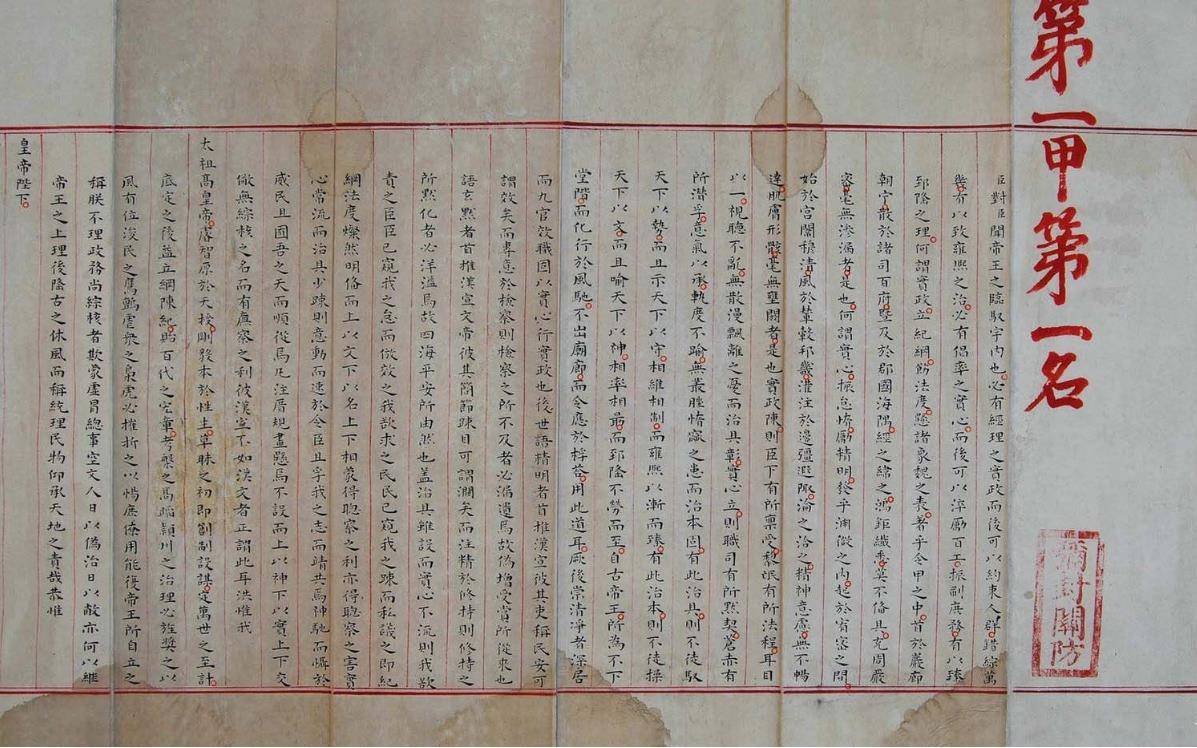 第一甲第一名
彌封關防
臣對臣聞帝王之臨馭宇內也必有經理之實政而後可以約束人群錯綜萬
幾有以致雍熙之治必有倡率之實心而後可以淬勵百工振刷庶務有以臻
郅隆之理何謂實政立紀綱飭法度懸諸象魏之表著乎令甲之中首於巖廊
朝宁散於諸司百府暨及於郡國海隅經之緯之鴻鉅纖悉莫不備具充周嚴
密毫無滲漏者是也何謂實心振怠惰勵精明發乎淵微之內起於宥密之間
始於宮闈穆清風於輦轂邦畿灌注於邊疆遐陬淪之洽之精神意慮無不暢
達肌膚形骸毫無壅閼者是也實政陳則臣下有所稟受黎氓有所法程耳目
以一視聽不亂無散漫飄離之憂而治具彰實心立則職司有所默契蒼赤有
所潛孚意氣以承軌度不踰無叢脞惰窳之患而治本固有此治具則不徒馭
天下以勢而且示天下以守相維相制而雍熙以漸而臻有此治本則不徒操
天下以文而且喻天下以神相率相勗而郅隆不勞而至自古帝王所為不下
堂階而化行於風馳不出廟廊而令應於桴荅用此道耳厥後崇清淨者深居
而九官效職固以實心行實政也後世語精明者首推漢宣彼其吏稱民安可
謂效矣而專意於檢察則檢察之所不及者必漏遺焉故偽增受賞所從來也
語玄默者首推漢宣文帝彼其簡節疎目可謂濶矣而注精於修持則修持之
所默化者必洋溢焉故四海平安所由然也盖治具雖設而實心不流則我欲
責之臣臣已窺我之怠而倣效之我欲求之民民已窺我之疎而私議之即紀
綱法度燦然明備而上以文下以名上下相蒙得聰察之利亦得聰察之害實
心常流而治具少疎則意動而速於令臣且孚我之志而靖共焉神馳而懾於
威民且囿吾之天而順從焉凡注厝規畫懸焉不設而上以神下以實上下交
儆無綜核之名而有廉察之利彼漢宣不如漢文者正謂此耳洪惟我
太祖高皇帝睿智原於天授剛毅本於性生草昧之初即創制設謀定萬世之至計
底定之後益立綱陳紀貽百代之宏章考槃之高蹈潁川之治理必旌奬之以
風有位浚民之鷹鸇虐衆之梟虎必摧折之以惕庶僚用能復帝王所自立之
稱朕不理政務尚綜核者欺蒙虛冒總事空文人日以偽治日以敝亦何以繼
帝王之上理後隆古之休風而稱統理民物仰承天地之責哉恭惟
皇帝陛下